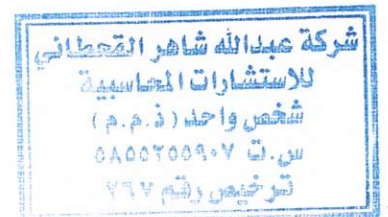 شركة عبدالله شاهر القحطاني
للاستشارات المحاسبية
شخص واحد ( ذ.م.م )
س.ت ٥٨٥٥٣٥٥٩٠٧
ترخيص رقم